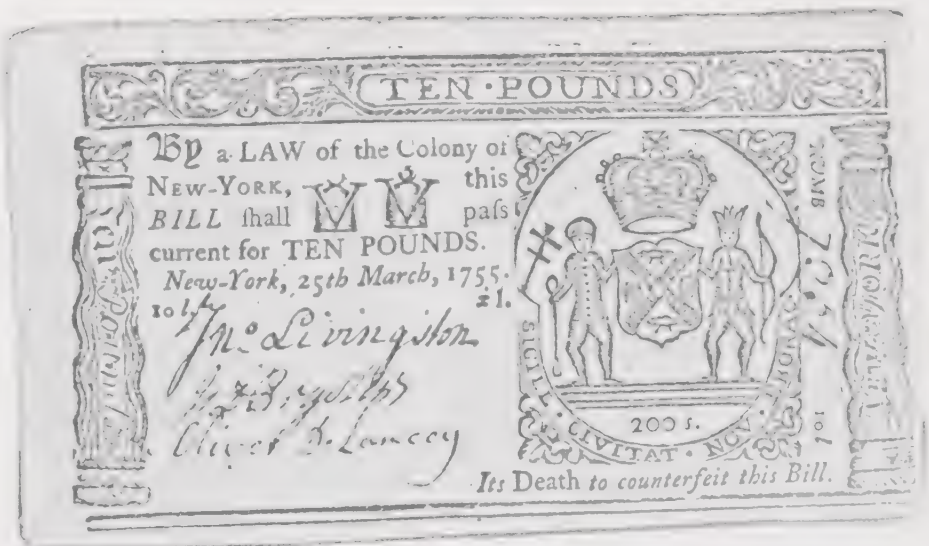 TEN·POUNDS
By a LAW of the Colony of
NEW-YORK, this
BILL ſhall paſs
current for TEN POUNDS.
New-York, 25th March, 1755.
10 l. x l.
Jnº Livingston
Oliver D. Lancey
NUMB
SIGILL · CIVITAT · NOV
200 s.
10 l
Its Death to counterfeit this Bill.